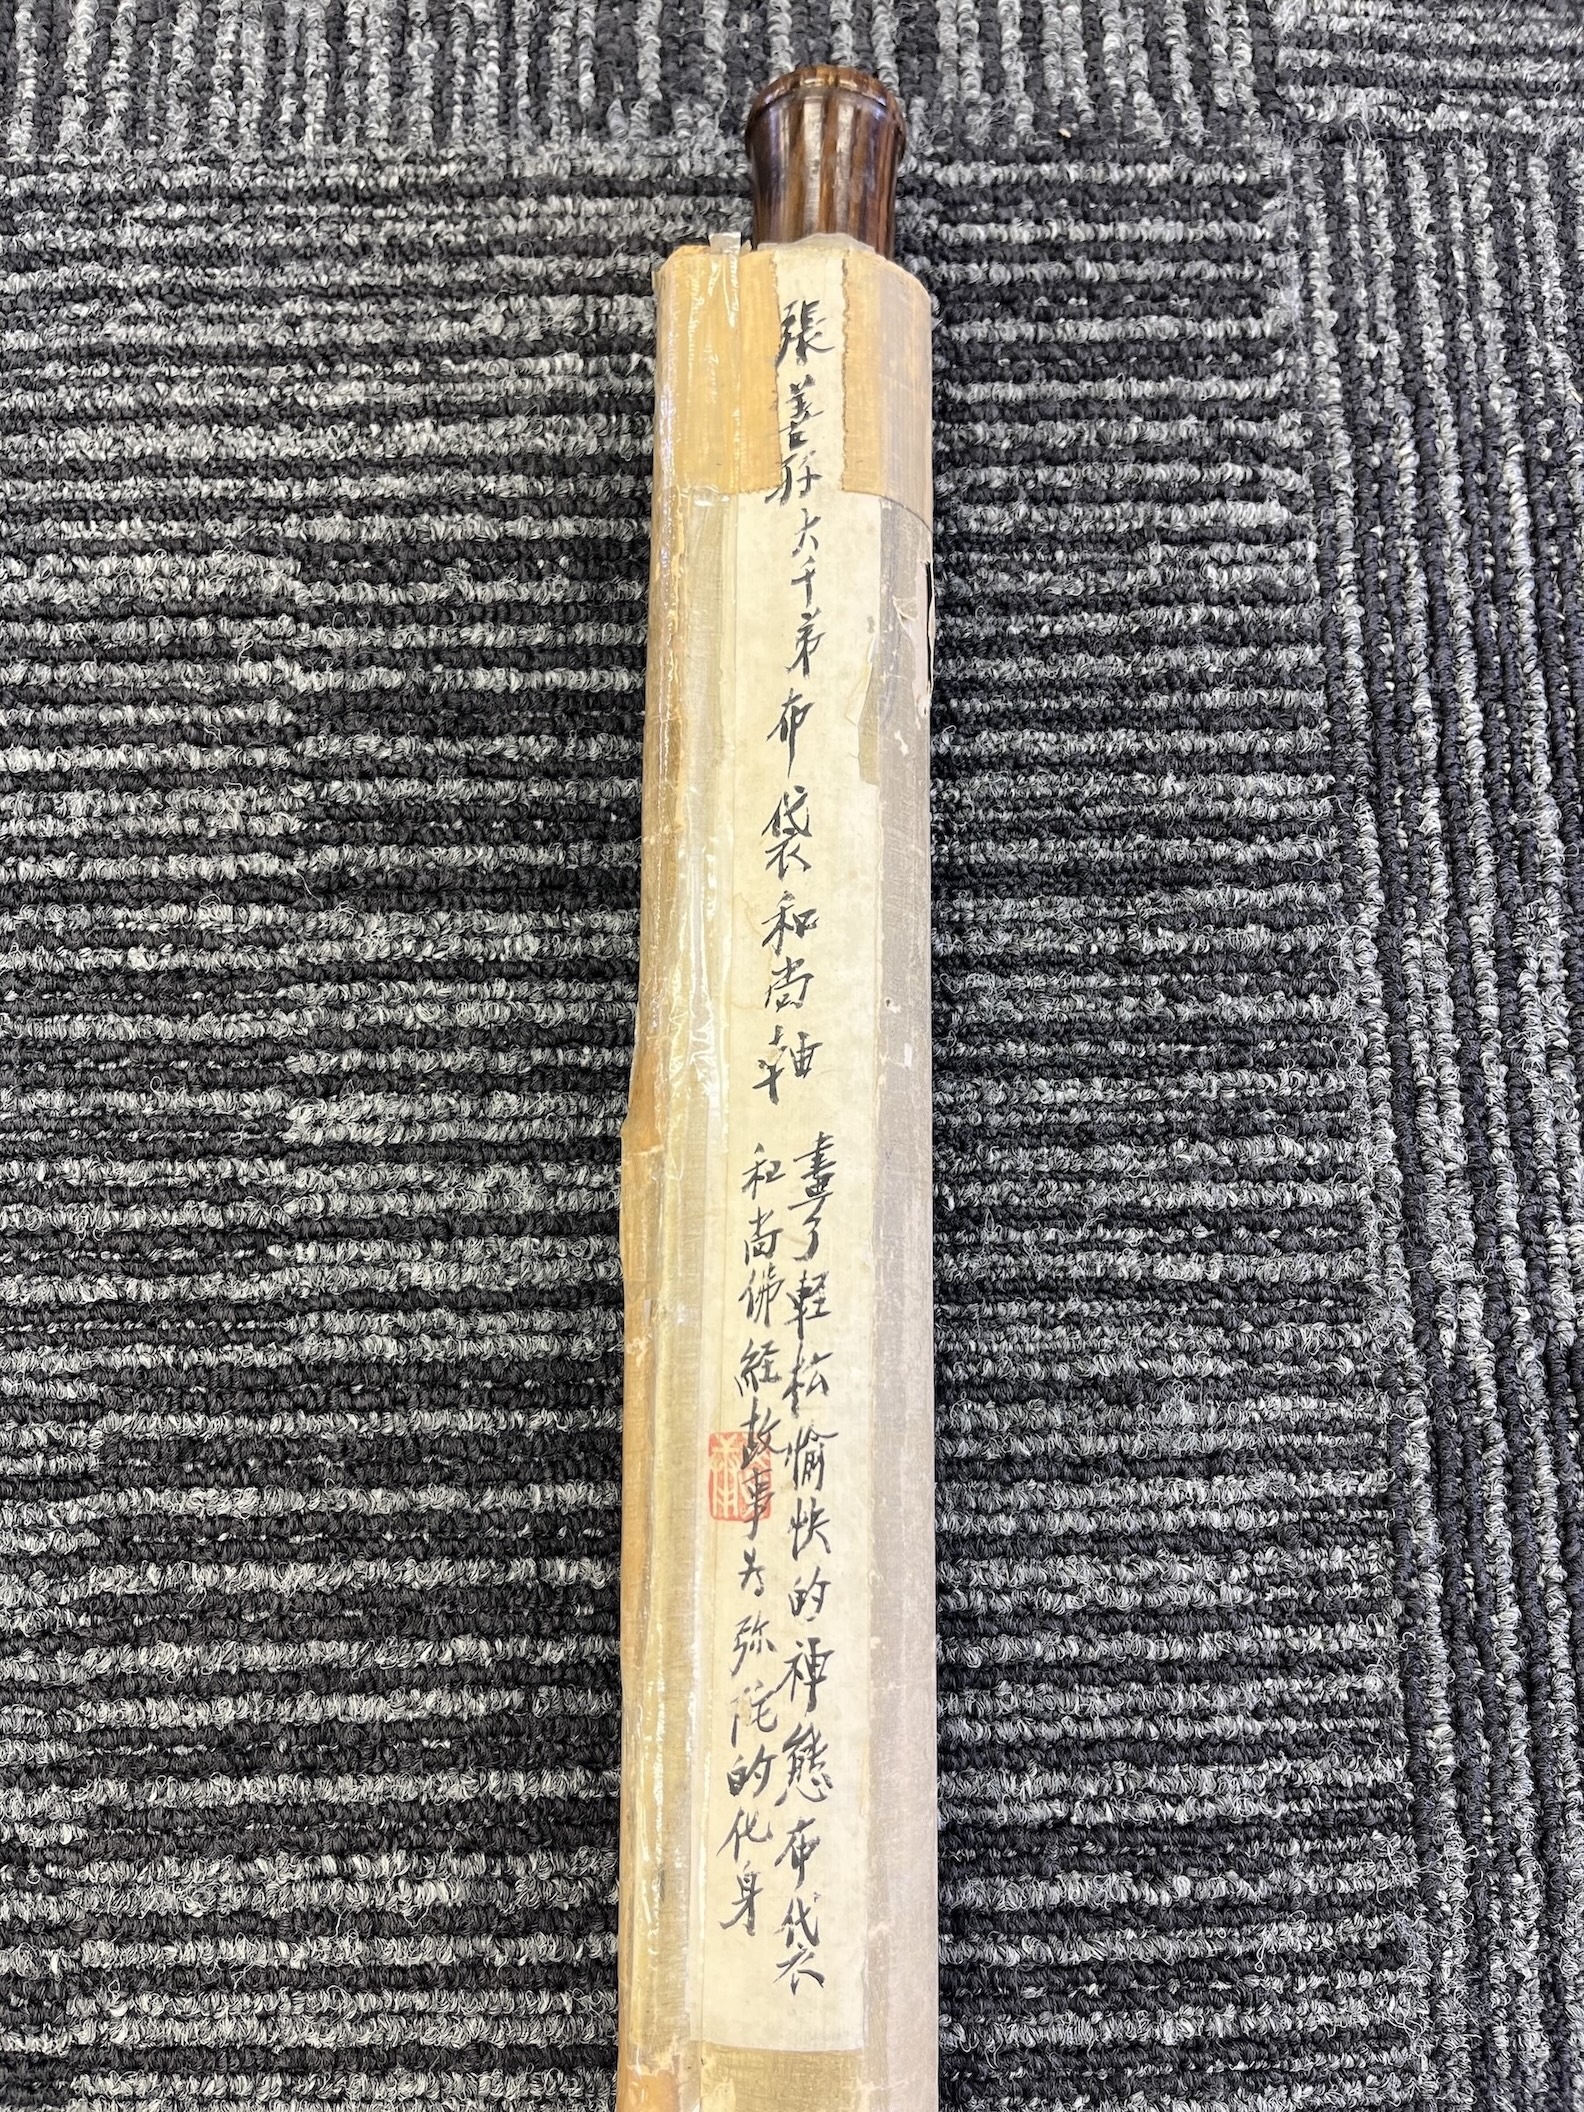 張善孖大千弟布袋和尚軸
畫了輕松愉快的神態布袋
和尚佛經故事为弥陀的化身